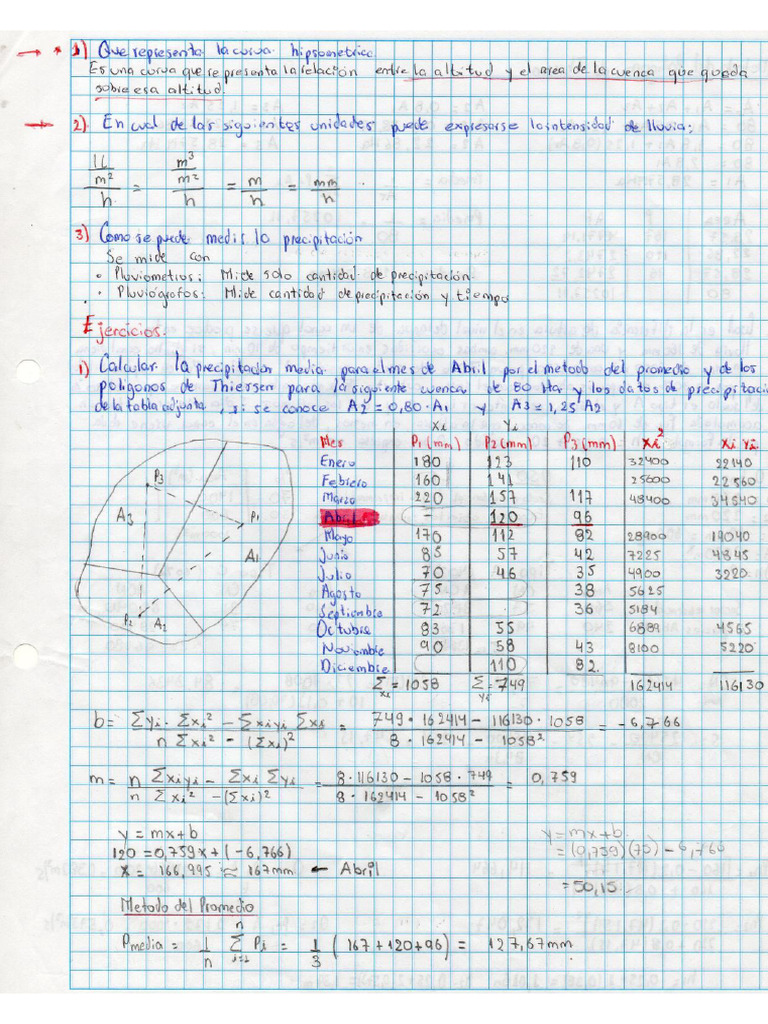 1) Que representa la curva hipsometrica
Es una curva que representa la relación entre la altitud y el area de la cuenca que queda
sobre esa altitud.
2) En cual de las siguientes unidades puede expresarse la intensidad de lluvia:
1L/m² / h = m³/m² / h = m/h = mm/h
3) Como se puede medir la precipitación
Se mide con
• Pluviometros: Mide solo cantidad de precipitación.
• Pluviógrafos: Mide cantidad de precipitación y tiempo
Ejercicios.
1) Calcular la precipitacion media para el mes de Abril por el metodo del promedio y de los
poligonos de Thiersen para la siguiente cuenca de 80 Ha y los datos de precipitacio
de la tabla adjunta, si se conoce A2=0,80·A1 y A3=1,25 A2
Xi Yi
Mes P1(mm) P2(mm) P3(mm) Xi² Xi Yi
Enero 180 123 110 32400 22140
Febrero 160 141 25600 22560
Marzo 220 157 117 48400 34540
Abril - 120 96
Mayo 170 112 82 28900 19040
Junio 85 57 42 7225 4845
Julio 70 46 35 4900 3220
Agosto 75 38 5625
Septiembre 72 . 36 5184
Octubre 83 55 6889 4565
Noviembre 90 58 43 8100 5220
Diciembre 110 82
Σxi = 1058 Σyi = 749 162414 116130
P3
A3
P1
A1
P2
A2
b = Σyi · Σxi² - Σxiyi Σxi / n Σxi² - (Σxi)² = 749 · 162414 - 116130 · 1058 / 8 · 162414 - 1058² = -6,766
m = n Σxiyi - Σxi Σyi / n Σxi² - (Σxi)² = 8 · 116130 - 1058 · 749 / 8 · 162414 - 1058² = 0,759
y = mx+b
120 = 0,759x + (-6,766)
x = 166,995 ≈ 167mm ← Abril
y = mx+b
= (0,759)(75) - 6,766
= 50,15
Metodo del Promedio
Pmedia = 1/n Σ(i=1, n) Pi = 1/3 (167+120+96) = 127,67mm